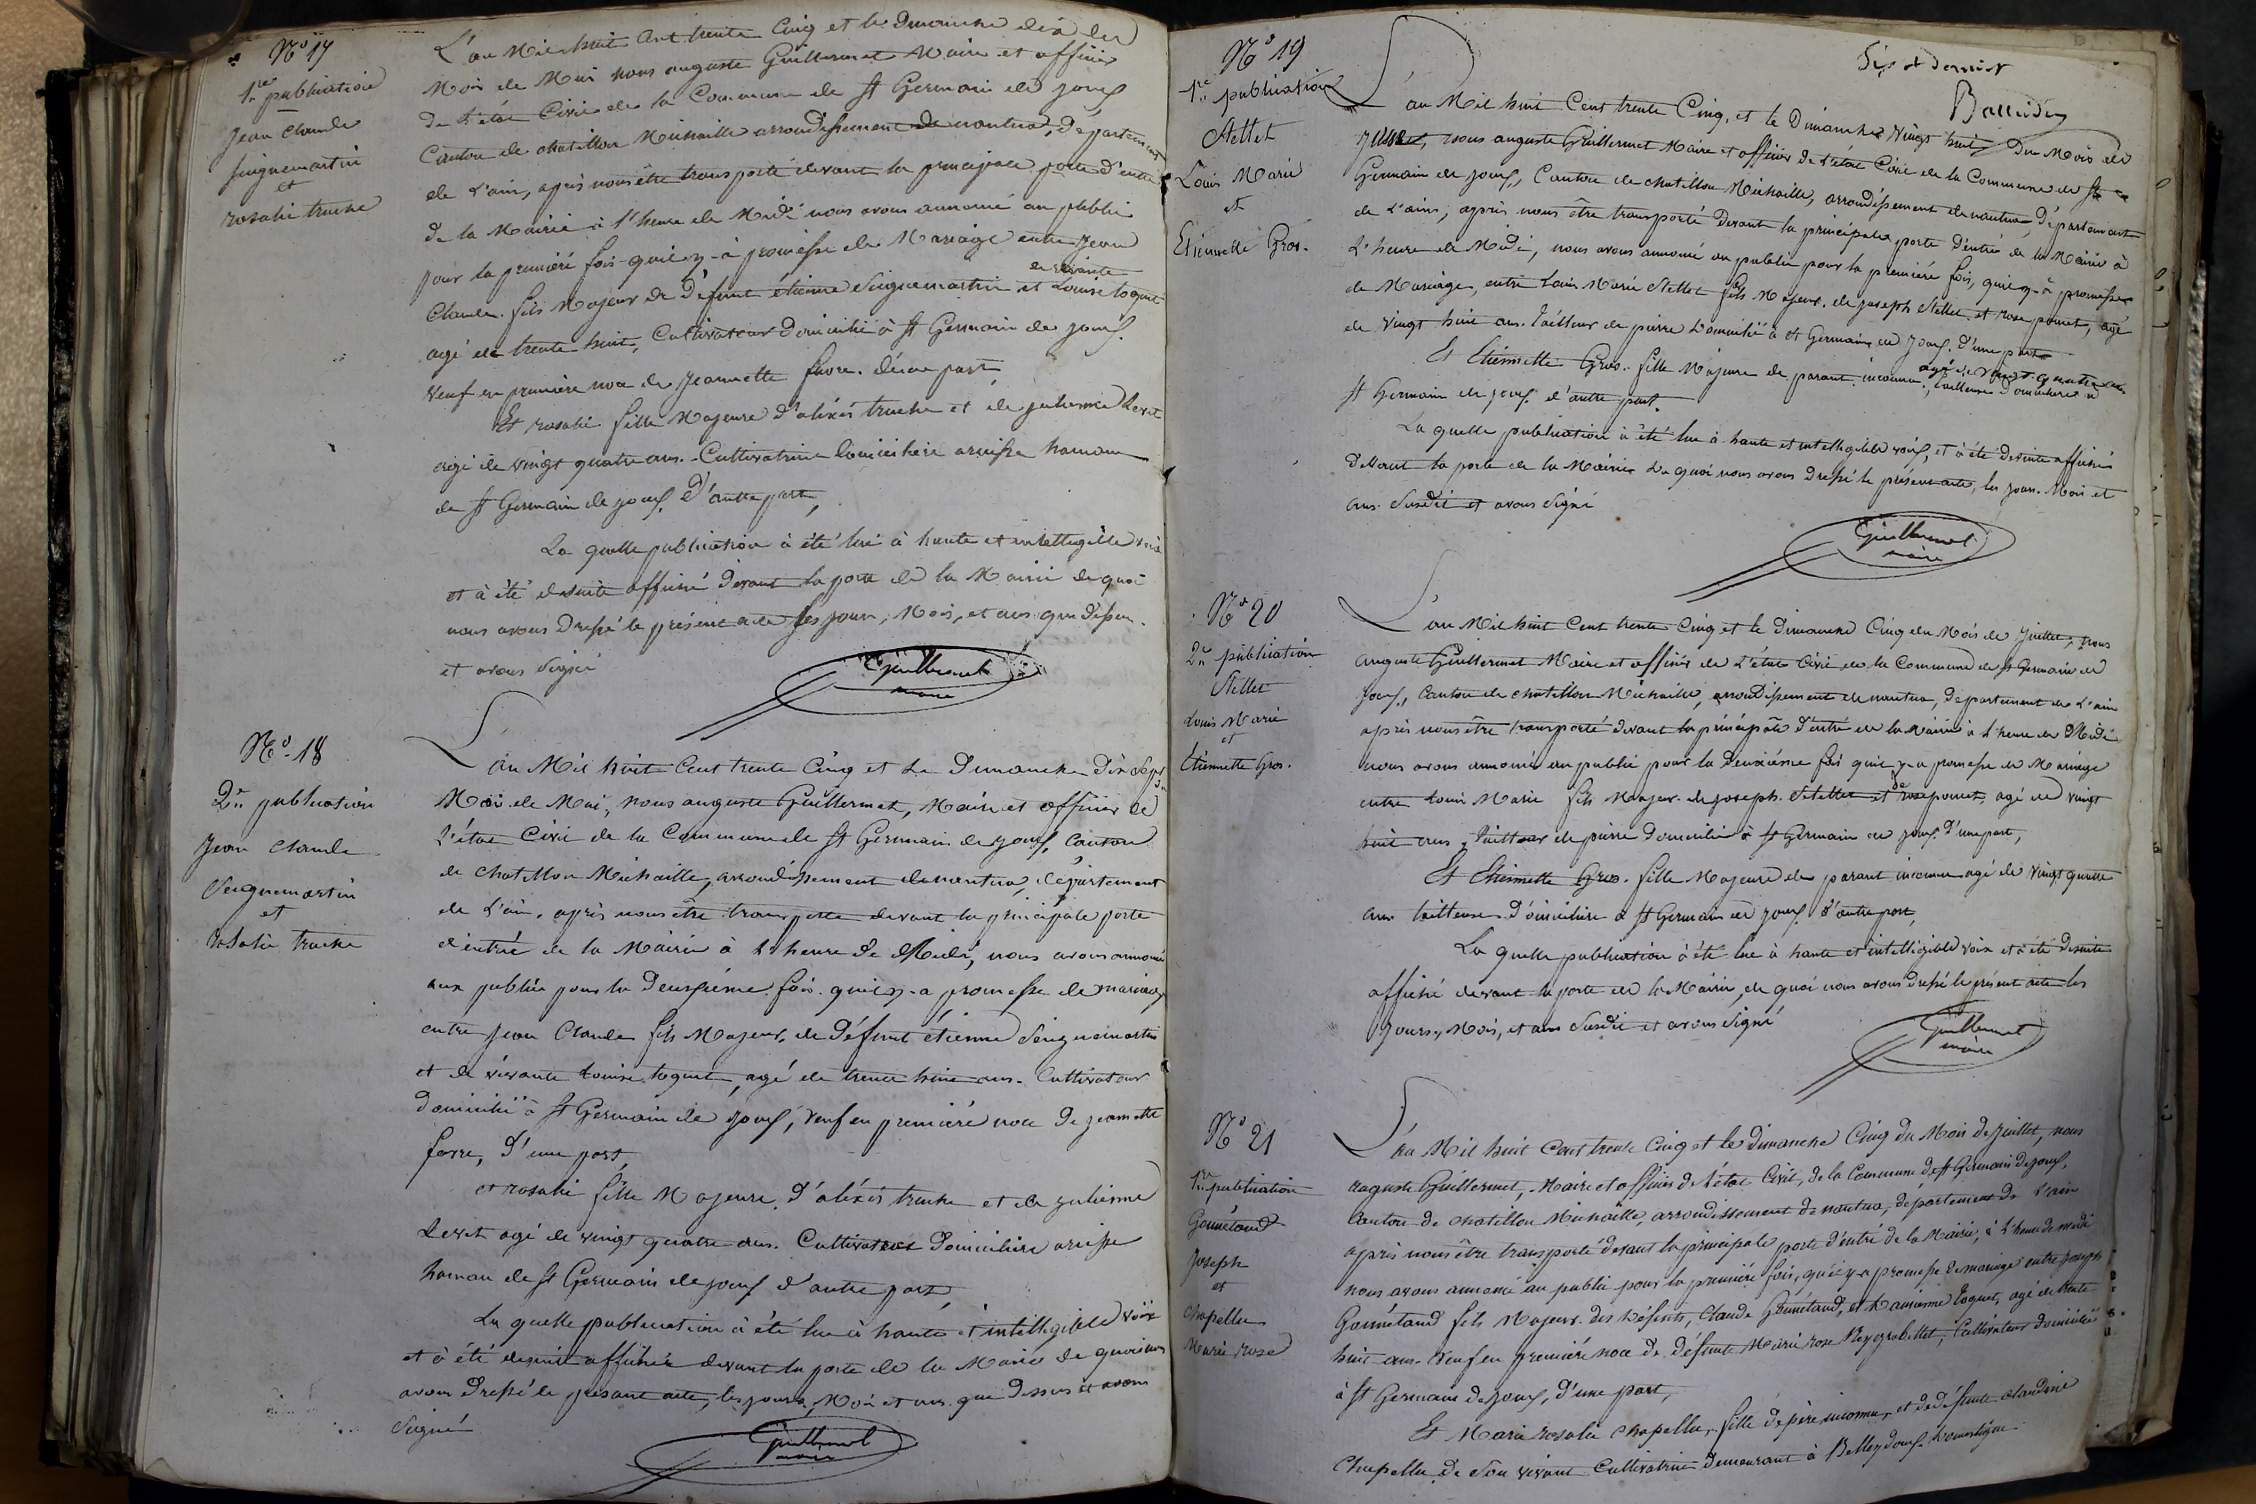 No 17
1re publication
Jean Claude
Seignemartin
et
rosalie truche
L'an Mil huit Cent trente Cinq et le Dimanche dix du
Mois de Mai nous auguste Guillermet Maire et officier
De L'état Civil de la Commune de St Germain de joux
Canton de chatillon Michaille arrondissement de nantua, Département
de L'ain, après nous être transporté devant la principale porte d'entré
de la Mairie à l'heure de Midi nous avons annoncé au public
pour la première fois quil y à promesse de Mariage entre Jean
Claude fils Majeur de Défunt étienne Seignemartin et de vivante Louise toquet
agé de trente huit, Cultivateur Domicilié à St Germain de joux.
Veuf en première noce de Jeannette favre. d'une part,
Et rosalie fille Majeure d'aléxis truche et de julienne Levet
agé de vingt quatre ans. Cultivatrice Domicilière
hamau
de St Germain de joux D'autre part,
La quelle publication à été lue à haute et intelligible voix
et à été desuite affiché devant la porte de la Mairie de quoi
nous avons Dressé le présent acte les jour, Mois, et ans que dessu.
et avons Signé
Guillermet
maire
No 18
2me publication
Jean Claude
Seignemartin
et
rosalie truche
L'an Mil huit Cent trente Cinq et Le Dimanche Dix Sept du
Moi de Mai, nous auguste Guillermet, Maire et officier de
L'état Civil de la Commune de St Germain de joux, Canton
de chatillon Michaille, arrondissement de nantua, département
de L'ain, après nous être transporté devant la principale porte
d'entrée de la Mairie à L'heure de Midi, nous avons annoncé
aux public pour la Deuxième fois quil y a promesse de mariage
entre Jean Claude fils Majeur de Défunt étienne Seignemartin
et de vivante Louise toquet, agé de trente huit ans. Cultivateur
Domicilié à St Germain de joux, Veuf en première noce De jeannette
favre, D'une part,
et rosalie fille Majeure D'aléxis truche et de julienne
Levet agé de vingt quatre ans. Domicilière
hamau de St Germain de joux D'autre part,
La quelle publication à été lue à haute et intelligible voix
et à été desuite affichée devant la porte de la Mairie de quoi nous
avons Dressé le présent acte, les jours, Moi et ans que Dessus et avons
Signé
Guillermet
maire
No 19
1re publication
Louis Marie
et
Etiennette Gros.
L'an Mil huit Cent trente Cinq, et le Dimanche vingt huit Du Mois de
nous auguste Guillermet Maire et officier de L'état Civil de la Commune de St
Germain de joux, Canton de chatillon Michaille, arrondissement de nantua Département
de L'ain, après nous être transporté Devant la principale porte d'entrée de la Mairie à
L'heure de Midi, nous avons annoncé au public pour la première fois, quil y à promesse
de Mariage, entre Louis Marie fils Majeur de joseph et rose poncet, agé
de vingt huit ans. Tailleur de pierre Domicilié à St Germain de joux. D'une part
Et Etiennette Gros. fille Majeure de parant inconnu agé de vingt quatre ans, tailleuse Domicilière à
St Germain de joux d'autre part.
La quelle publication à été lue à haute et intelligible voix, et à été desuite affiché
Devant la porte de la Mairie De quoi nous avons Dressé le présent acte, les jours. Mois et
ans. Susdit et avons Signé
Guillermet
maire
No 20
2me publication
Louis Marie
et
Etiennette Gros.
L'an Mil huit Cent trente Cinq et le Dimanche Cinq du Mois de Juillet, nous
auguste Guillermet Maire et officier de L'état Civil de la Commune de St Germain de
joux, Canton de chatillon Michaille, arrondissement de nantua, Département de L'ain
après nous être transporté devant la principale d'entré de la Mairie à L'heure de Midi
nous avons annoncé au public pour la Deuxième fois quil y a promesse de Mariage
entre Louis Marie fils Majeur de joseph et de rose poncet, agé de vingt
huit ans, Tailleur de pierre Domicilié à St Germain de joux D'une part,
Et Etiennette Gros. fille Majeure de parant inconnu agé de vingt quatre
ans tailleuse Domicilière à St Germain de joux d'autre part,
La quelle publication à été lue à haute et intelligible voix et à été desuite
affiché devant la porte de la Mairie, de quoi nous avons Dressé le présent acte les
jours, Mois, et ans Susdit et avons Signé
Guillermet
maire
No 21
1re publication
Joseph
et
Chapellu
Marie rose
L'an Mil huit Cent trente Cinq et le Dimanche Cinq du Mois de juillet, nous
auguste Guillermet, Maire et officier de L'état Civil, de la Commune de St Germain de joux,
Canton de chatillon Michaille, arrondissement de nantua, département de L'ain
après nous être transporté devant la principale porte d'entré de la Mairie, à L'heure de midi
nous avons annoncé au public pour la première fois, quil y a promesse de mariage entre joseph
fils Majeur des Défunts, Claude et toquet, agé de trente
huit ans. Veuf en première noce de défunte Marie rose Cultivateur domicilié
à St Germain de joux, d'une part,
Et Marie rosalie Chapellu, fille de père inconnu, et de défunte claudine
Chapellu, De Son vivant Cultivatrice Demeurant à Belleydoux Domestique